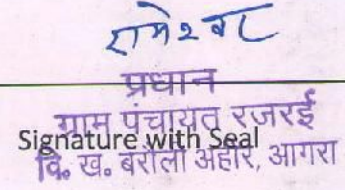 रामेश्वर
प्रधान
ग्राम पंचायत रजरई
Signature with Seal
वि. ख. बरौली अहीर, आगरा